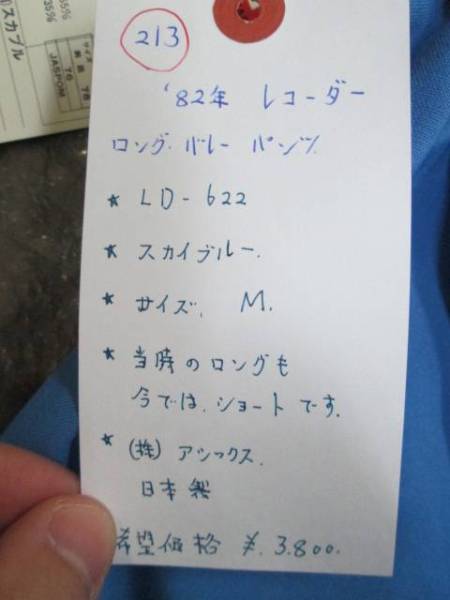 213
'82年 レコーダー
ロング.バレー パンツ.
★ LD-622
★ スカイブルー.
★ サイズ. M.
★ 当時のロングも
今では.ショートです.
★ (株) アシックス.
日本製
希望価格 ¥.3.800.
サイズ
胸囲 78
76
JASPOM
35%